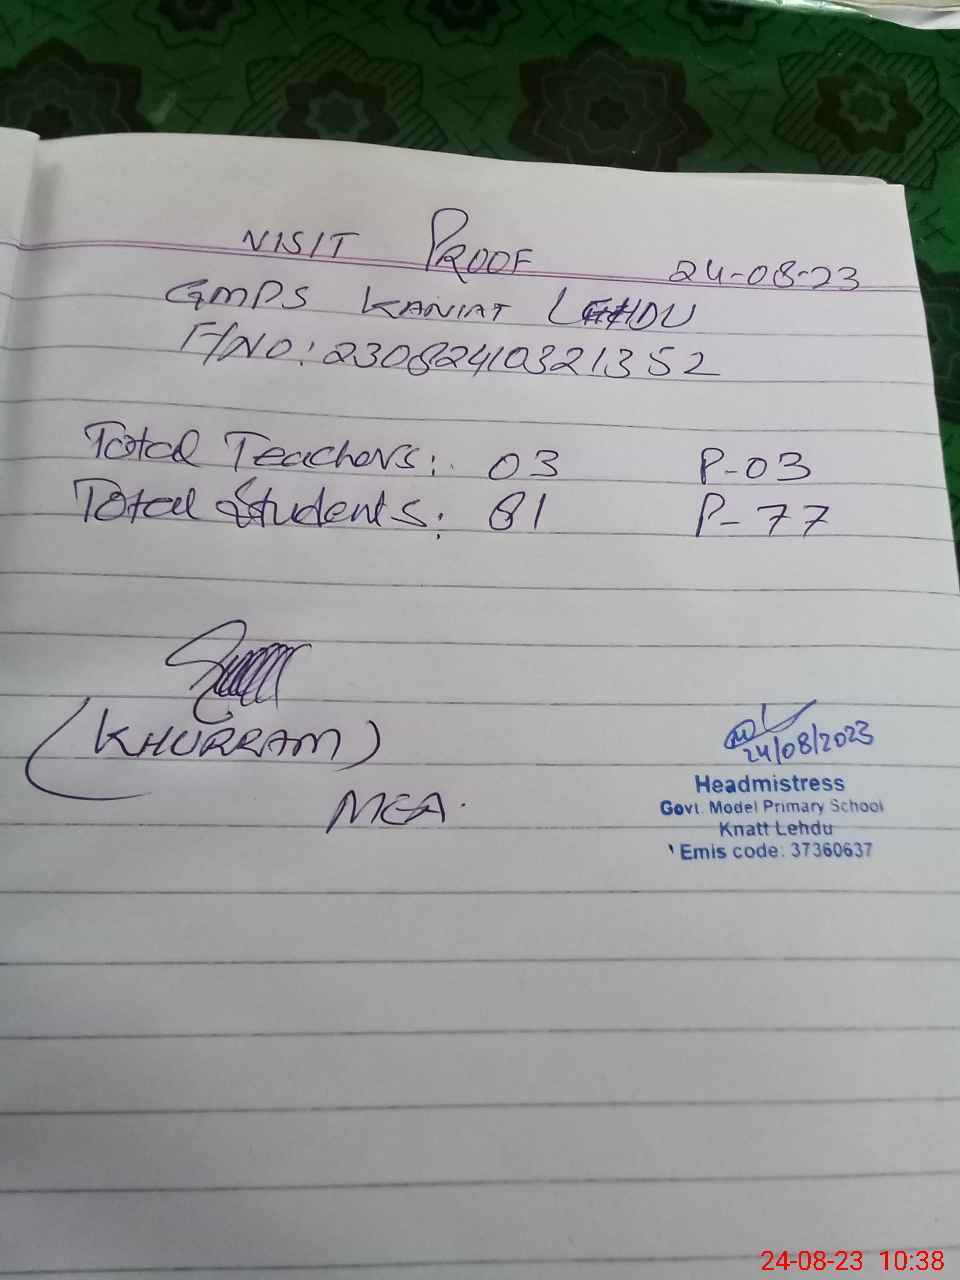 VISIT PROOF 24-08-23
GMPS KANIAT LEHDU
F/NO: 23082410321352
Total Teachers: 03 P-03
Total Students: 81 P-77
(KHURRAM)
MEA.
24/08/2023
Headmistress
Govt. Model Primary School
Knatt Lehdu
Emis code: 37360637
24-08-23 10:38